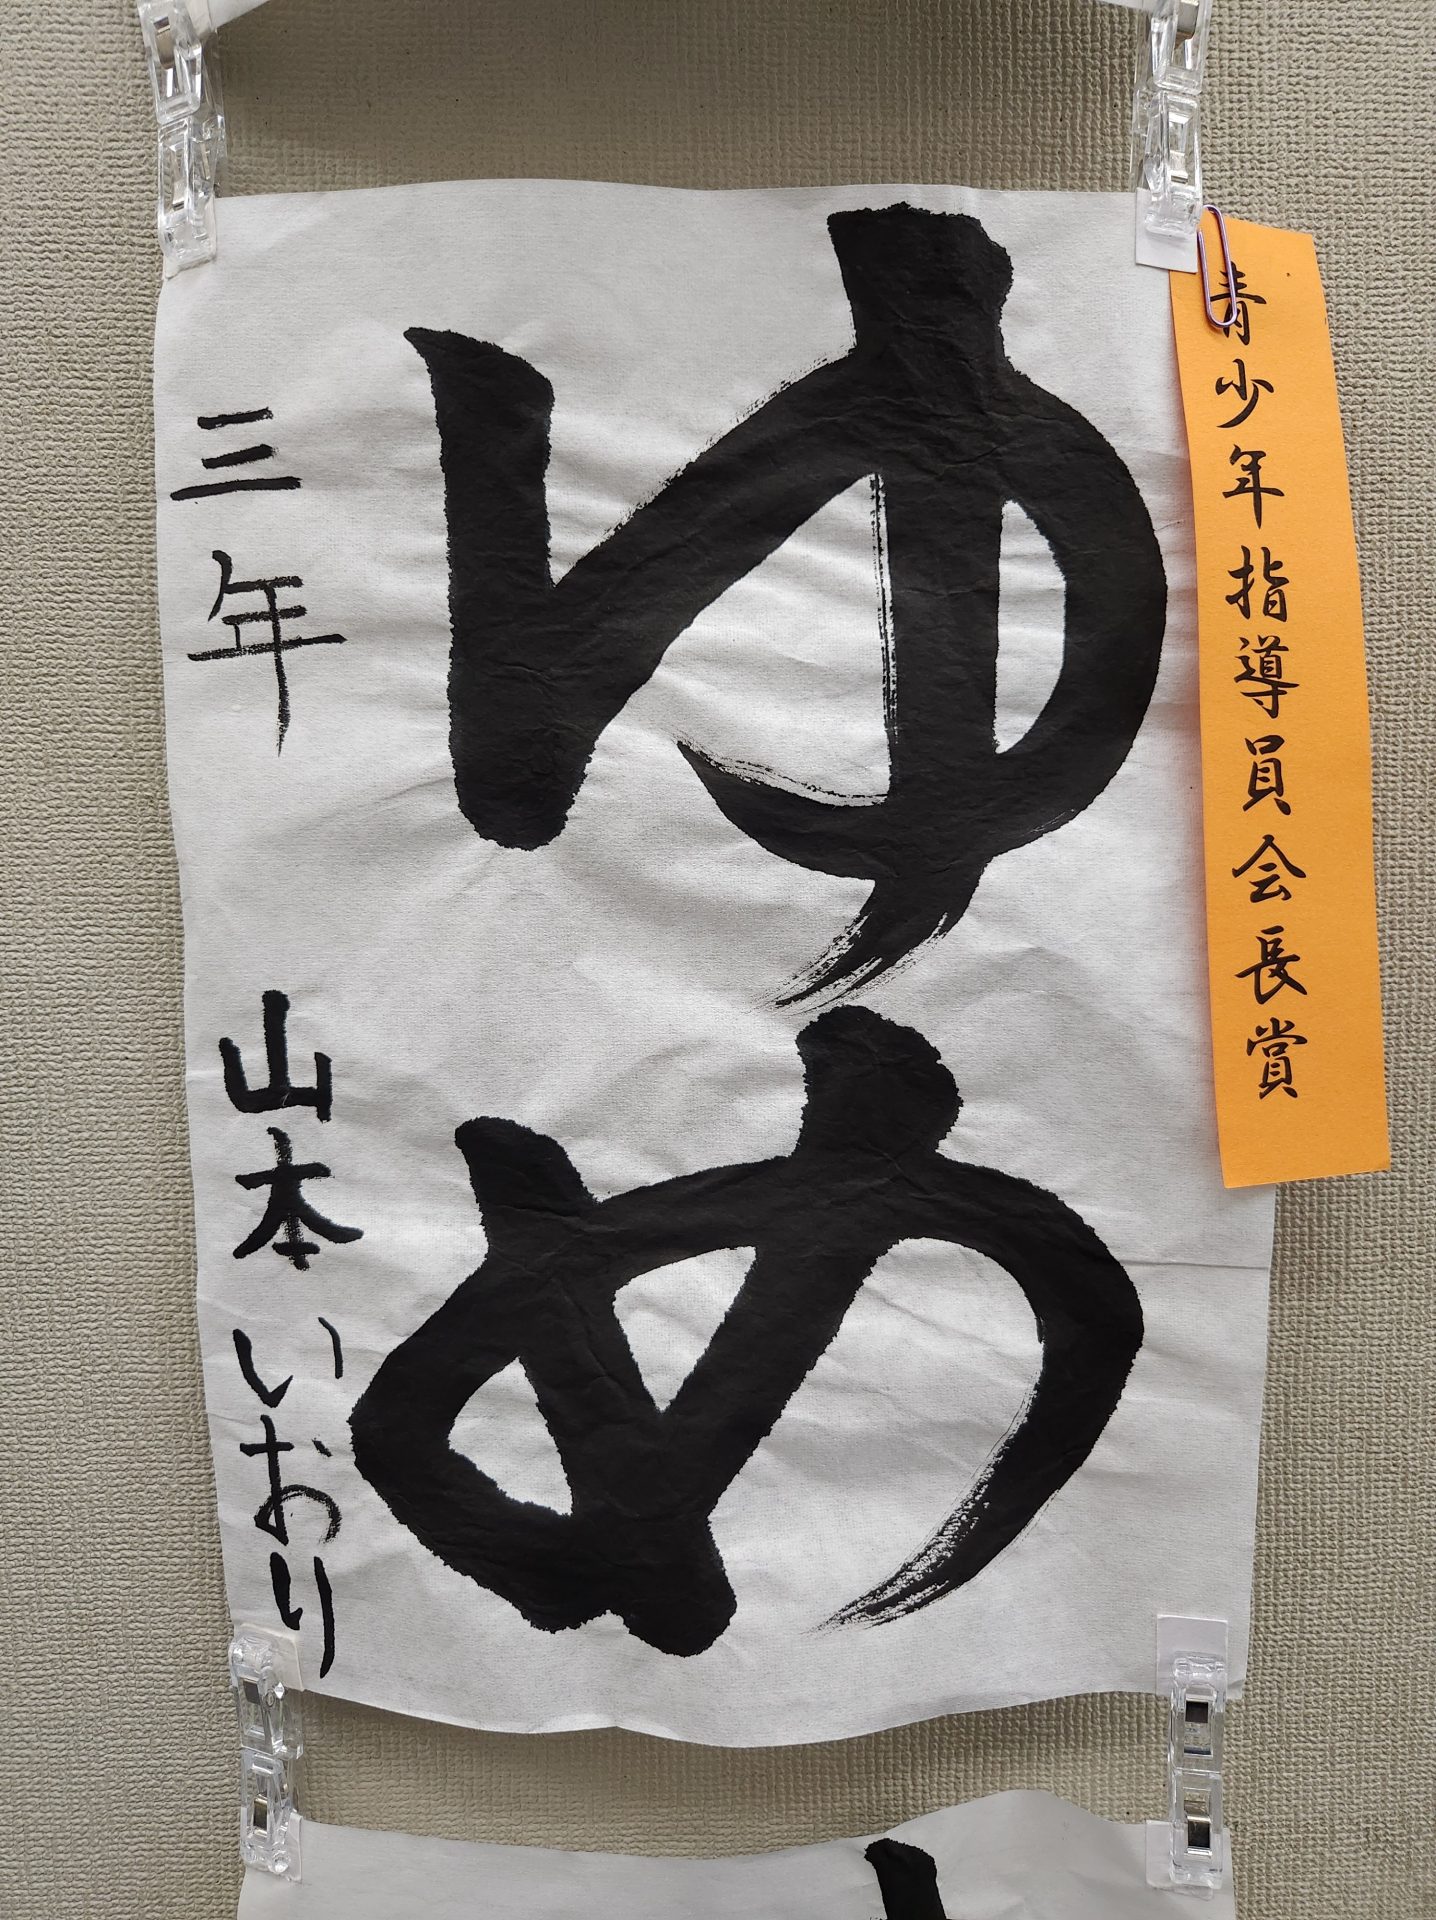 青少年指導員会長賞
ゆめ
三年 山本いおり